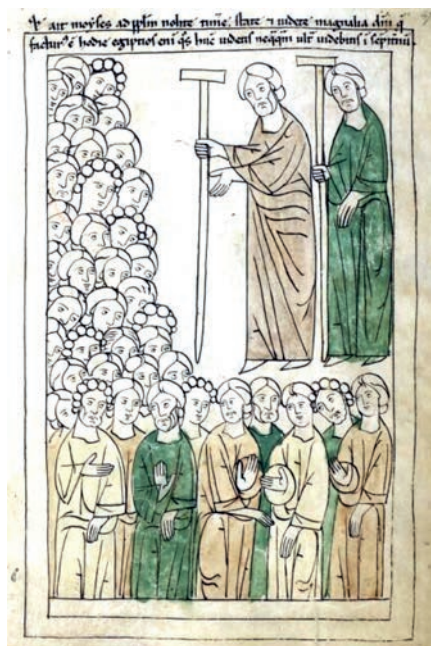 ait moyses ad pplm nolite timē. state ⁊ uidete magnalia dñi q̄
facturꝰ ē hodie egiptios eni q̄s nūc uidetis neq̄q̄m ult̄ uidebitis i sēpit̄nū.